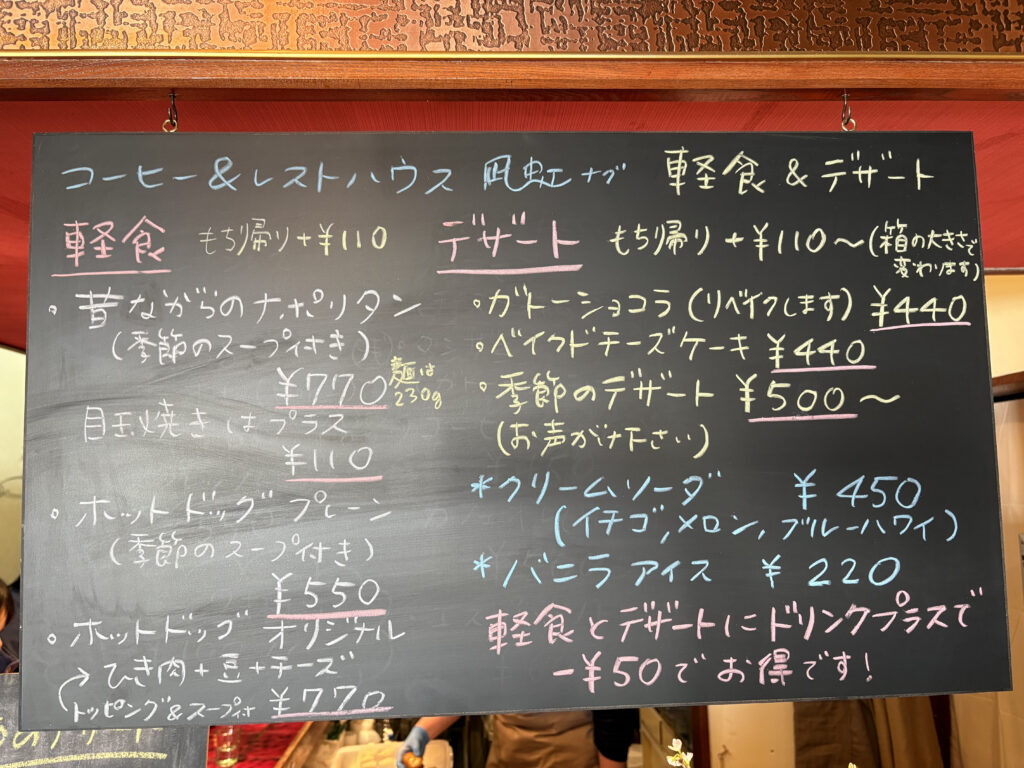 コーヒー&レストハウス 凪虹 ナゴ 軽食 & デザート
軽食 もち帰り+¥110
・昔ながらのナポリタン
(季節のスープ付き)
¥770 麺は230g
目玉焼きはプラス
¥110
・ホットドッグ プレーン
(季節のスープ付き)
¥550
・ホットドッグ オリジナル
→ひき肉+豆+チーズ
トッピング&スープ付 ¥770
デザート もち帰り+¥110〜(箱の大きさで
変わります)
・ガトーショコラ(リベイクします) ¥440
・ベイクドチーズケーキ ¥440
・季節のデザート ¥500〜
(お声がけ下さい)
*クリームソーダ ¥450
(イチゴ,メロン,ブルーハワイ)
*バニラアイス ¥220
軽食とデザートにドリンクプラスで
-¥50でお得です!
のデザート